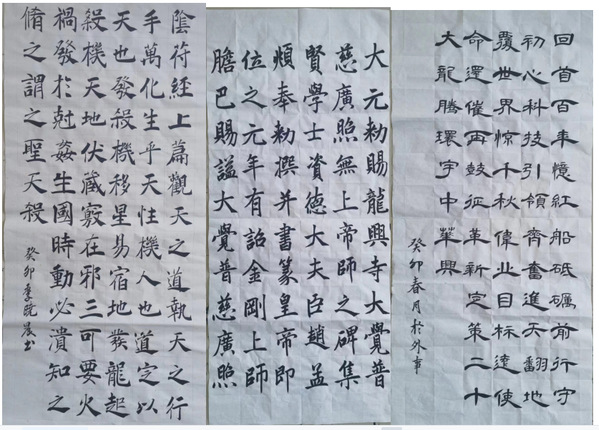 回首百年憶紅船砥礪前行守
初心科技引領齊奮進天翻地
覆世界惊千秋偉业目标遠使
命運催再鼓征革新定策二十
大龍腾環宇中華興
癸卯春月於外事
大元勅賜龍興寺大覺普
慈廣照無上帝師之碑集
賢學士資德大夫臣趙孟
頫奉勅撰并書篆皇帝即
位之元年有詔金剛上師
膽巴賜謚大覺普慈廣照
陰符經上篇觀天之道執天之行
手萬化生乎天性機人也道定以
天也發殺機移星易宿地發龍起
殺機天地伏藏竅在邪三可要火
禍發於尅姦生國時動必潰知之
脩之謂之聖天殺
癸卯季晨书